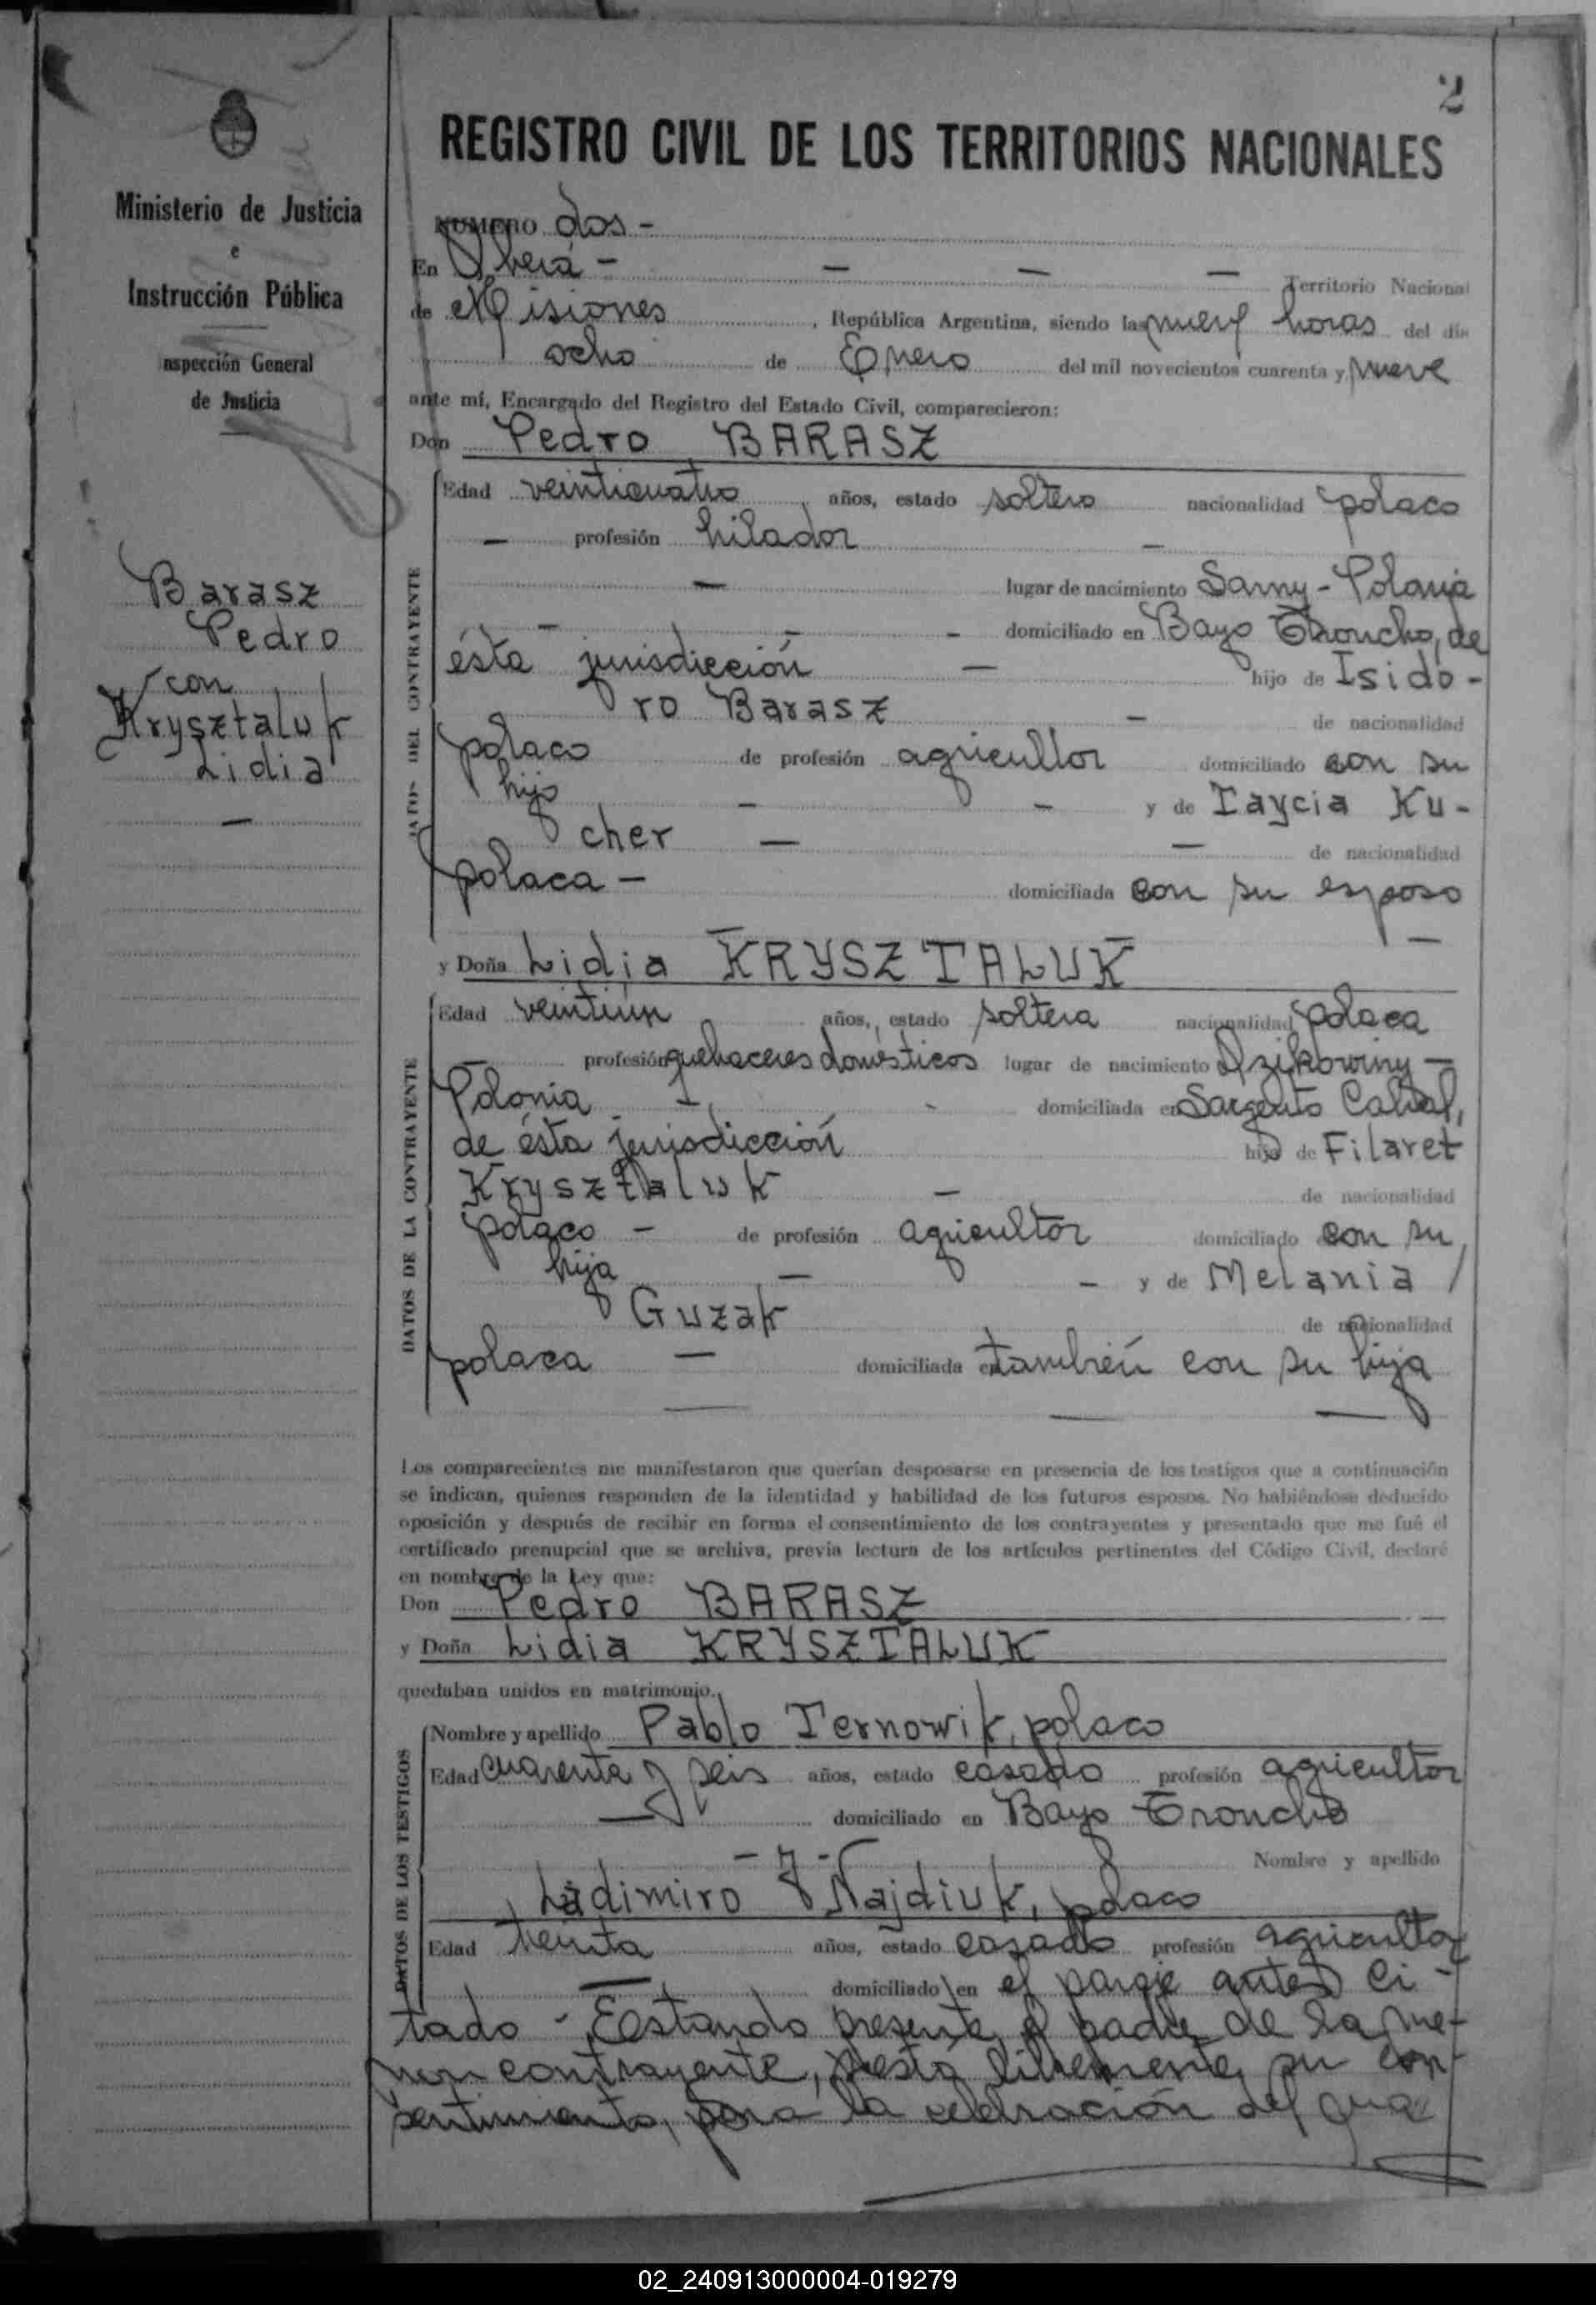 2
REGISTRO CIVIL DE LOS TERRITORIOS NACIONALES
Ministerio de Justicia
e
Instrucción Pública
nspección General
de Justicia
Barasz
Pedro
con
Krysztaluk
Lidia
NUMERO dos -
En Oberá - Territorio Nacional
de Misiones, República Argentina, siendo las nueve horas del día
ocho de Enero del mil novecientos cuarenta y nueve
ante mí, Encargado del Registro del Estado Civil, comparecieron:
Don Pedro BARASZ
DATOS DEL CONTRAYENTE
Edad veinticuatro años, estado soltero nacionalidad polaco
- profesión hilador -
- lugar de nacimiento Sarny - Polonia
- domiciliado en Bayo Troncho, de
ésta jurisdicción - hijo de Isido-
ro Barasz - de nacionalidad
polaco de profesión agricultor domiciliado con su
hijo - - y de Taycia Ku-
cher - - de nacionalidad
polaca - domiciliada con su esposo
-
y Doña Lidia KRYSZTALUK
DATOS DE LA CONTRAYENTE
Edad veintiún años, estado soltera nacionalidad polaca
- profesión quehaceres domésticos lugar de nacimiento -
Polonia - domiciliada en Sargento Cabral,
de ésta jurisdicción hija de Filaret
Krysztaluk - de nacionalidad
polaco - de profesión agricultor domiciliado con su
hija - - y de Melania /
Guzak de nacionalidad
polaca - domiciliada en también con su hija
Los comparecientes me manifestaron que querían desposarse en presencia de los testigos que a continuación
se indican, quienes responden de la identidad y habilidad de los futuros esposos. No habiéndose deducido
oposición y después de recibir en forma el consentimiento de los contrayentes y presentado que me fué el
certificado prenupcial que se archiva, previa lectura de los artículos pertinentes del Código Civil, declaré
en nombre de la Ley que:
Don Pedro BARASZ
y Doña Lidia KRYSZTALUK
quedaban unidos en matrimonio.
DATOS DE LOS TESTIGOS
Nombre y apellido Pablo Ternowik, polaco
Edad cuarenta y seis años, estado casado profesión agricultor
domiciliado en Bayo Troncho
- y - Nombre y apellido
Ladimiro Najdiuk, polaco
Edad treinta años, estado casado profesión agricultor
domiciliado en el paraje antes ci-
tado - Estando presente el padre de la me-
nor contrayente, presta libremente su con-
sentimiento, para la celebración del que
02_240913000004-019279